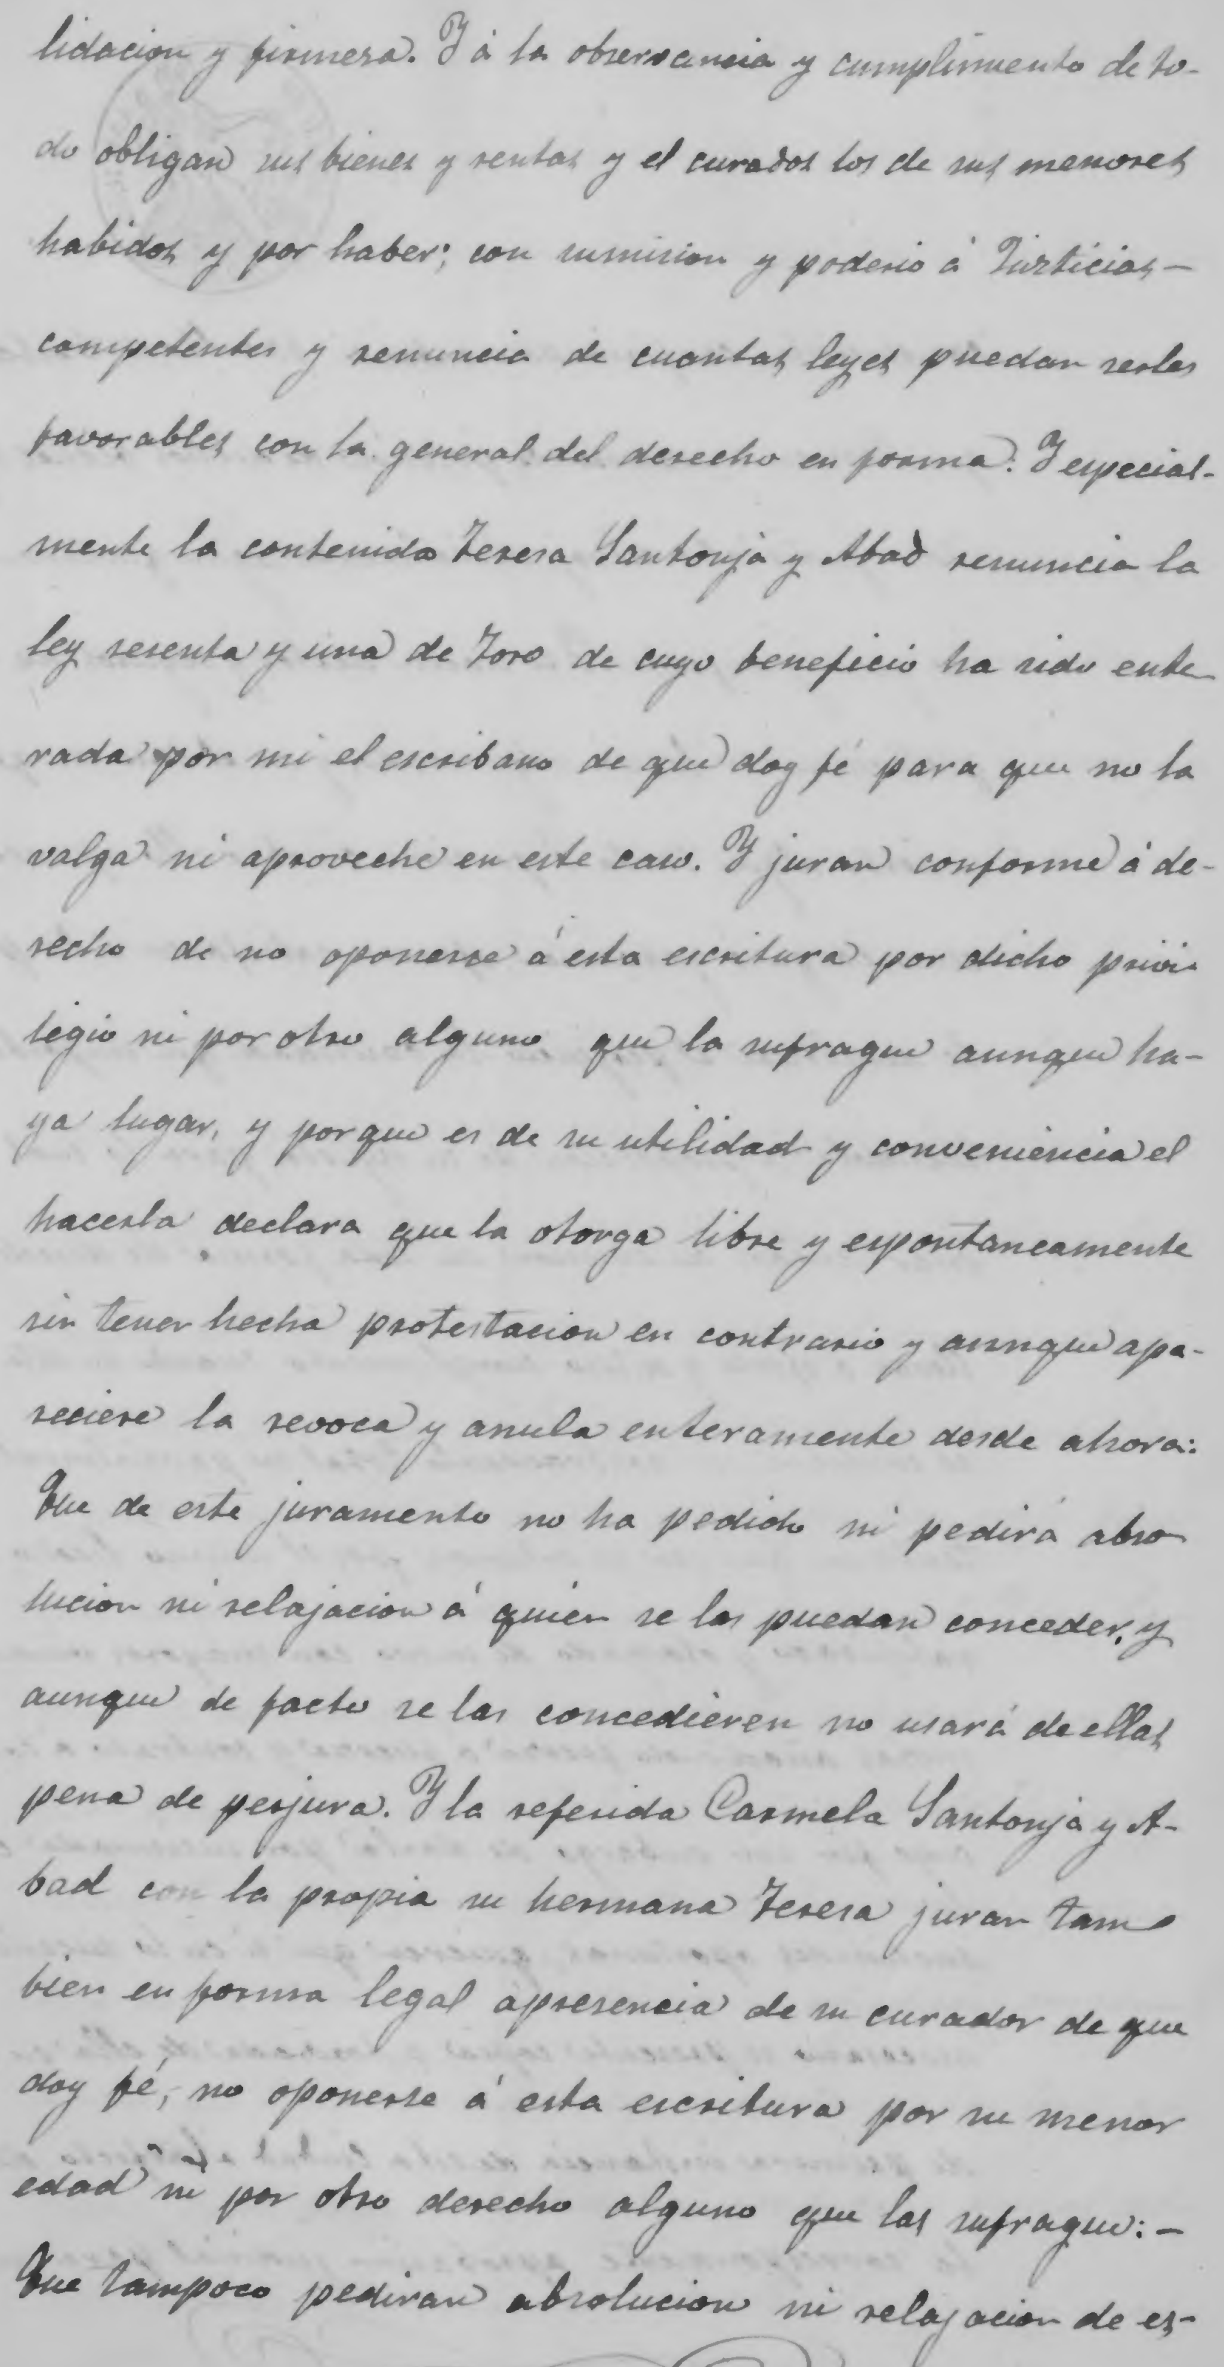 lidacion y firmeza. Y á la observancia y cumplimiento de to-
do obligan sus bienes y rentas y el curador los de sus menores
habidos y por haber; con sumision y poderio á Justicias-
competentes y renuncia de cuantas leyes puedan serles
favorables con la general del derecho en forma. Y especial-
mente la contenida Teresa Santonja y Abad renuncia la
ley sesenta y una de Toro de cuyo beneficio ha sido ente
rada por mi el escribano de que doy fé para que no la
valga ni aproveche en este caso. Y juran conforme á de-
recho de no oponerse á esta escritura por dicho privi-
legio ni por otro alguno que la sufrague aunque ha-
ya lugar, y porque es de su utilidad y conveniencia el
hacerla declara que la otorga libre y espontaneamente
sin tener hecha protestacion en contrario y aunque apa-
reciere la revoca y anula enteramente desde ahora:
Que de este juramento no ha pedido ni pedirá abso
lucion ni relajacion á quien se las puedan conceder, y
aunque de facto se las concedieren no usará de ellas
pena de perjura. Y la referida Carmela Santonja y A-
bad con la propia su hermana Teresa juran tam-
bien en forma legal apresencia de su curador de que
doy fé, no oponerse á esta escritura por su menor
edad ni por otro derecho alguno que las sufrague: -
Que tampoco pediran absolucion ni relajacion de es-